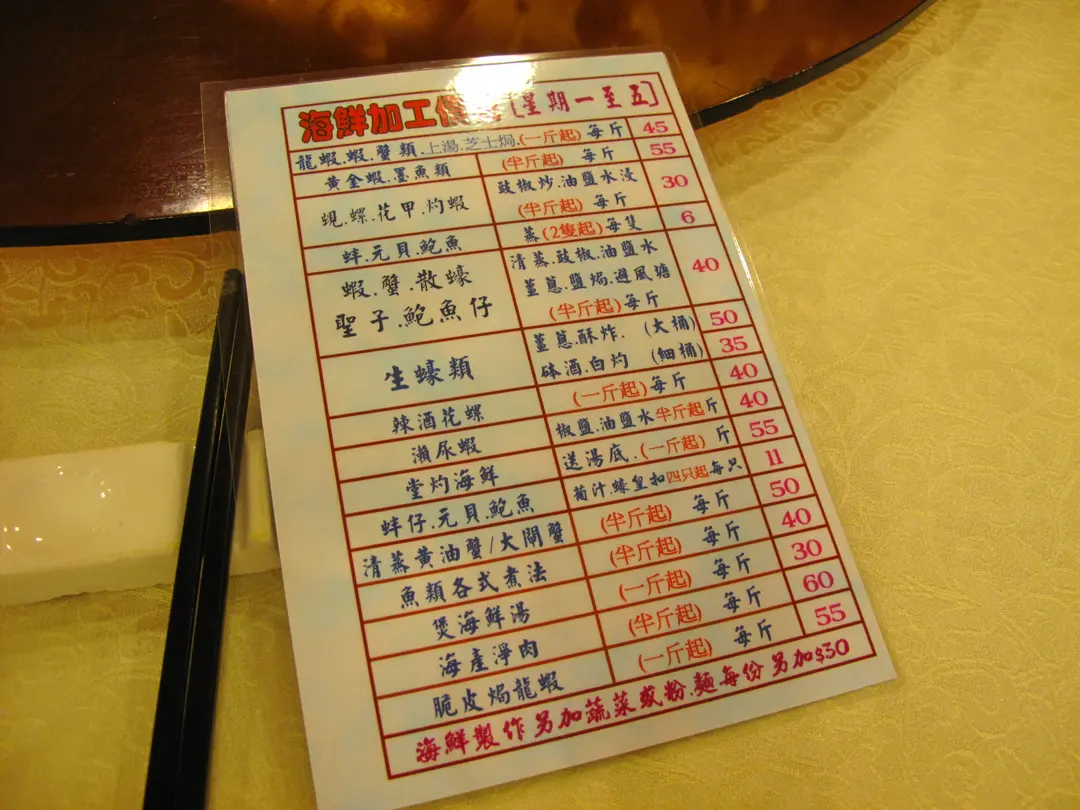 海鮮加工 [星期一至五]
龍蝦.蝦.蟹類.上湯.芝士焗.(一斤起) 每斤 45
黃金蝦.墨魚類 (半斤起) 每斤 55
蜆.螺.花甲.灼蝦 豉椒炒.油鹽水浸 (半斤起) 每斤 30
蚌.元貝.鮑魚 蒸(2隻起)每隻 6
蝦.蟹.散蠔
聖子.鮑魚仔
清蒸.豉椒.油鹽水
薑蔥.鹽焗.避風塘
(半斤起)每斤 40
生蠔類
薑蔥.酥炸. (大桶) 50
砵酒.白灼 (細桶) 35
辣酒花螺 (一斤起)每斤 40
瀨尿蝦 椒鹽.油鹽水半斤起斤 40
堂灼海鮮 送湯底.(一斤起) 斤 55
蚌仔.元貝.鮑魚 蠔皇扣四只起每只 11
清蒸黃油蟹/大閘蟹 (半斤起) 每斤 50
魚類各式煮法 (半斤起) 每斤 40
煲海鮮湯 (一斤起) 每斤 30
海產淨肉 (半斤起) 每斤 60
脆皮焗龍蝦 (一斤起) 每斤 55
海鮮製作另加蔬菜或粉.麵每份另加$30